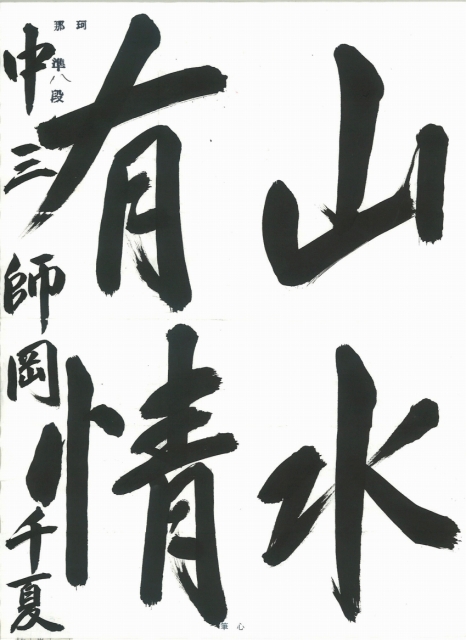 山水
有情
珂那
準八段
中三 師岡千夏
心筆